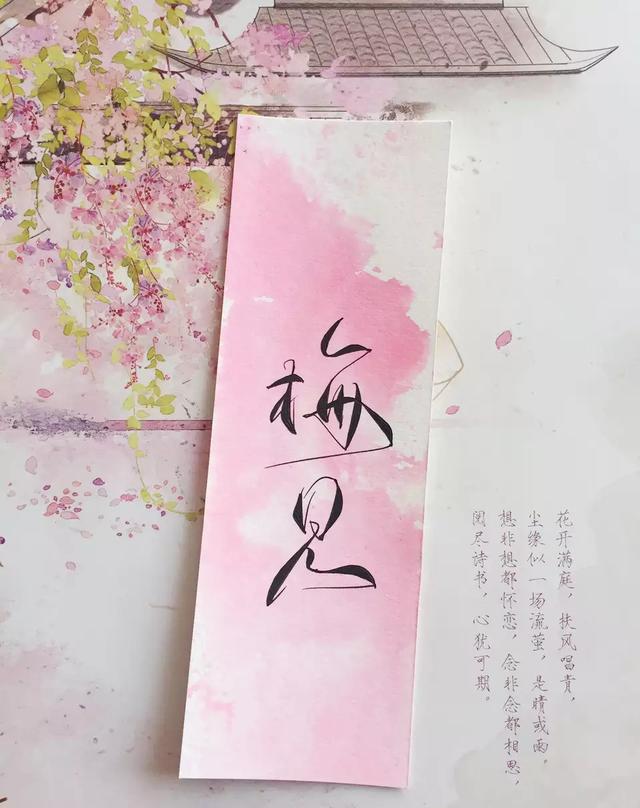 梅见
花开满庭，扶风唱，
尘缘似一场流萤，是晴或雨。
想非想都怀恋，念非念都相思，
阅尽诗书，心犹可期。